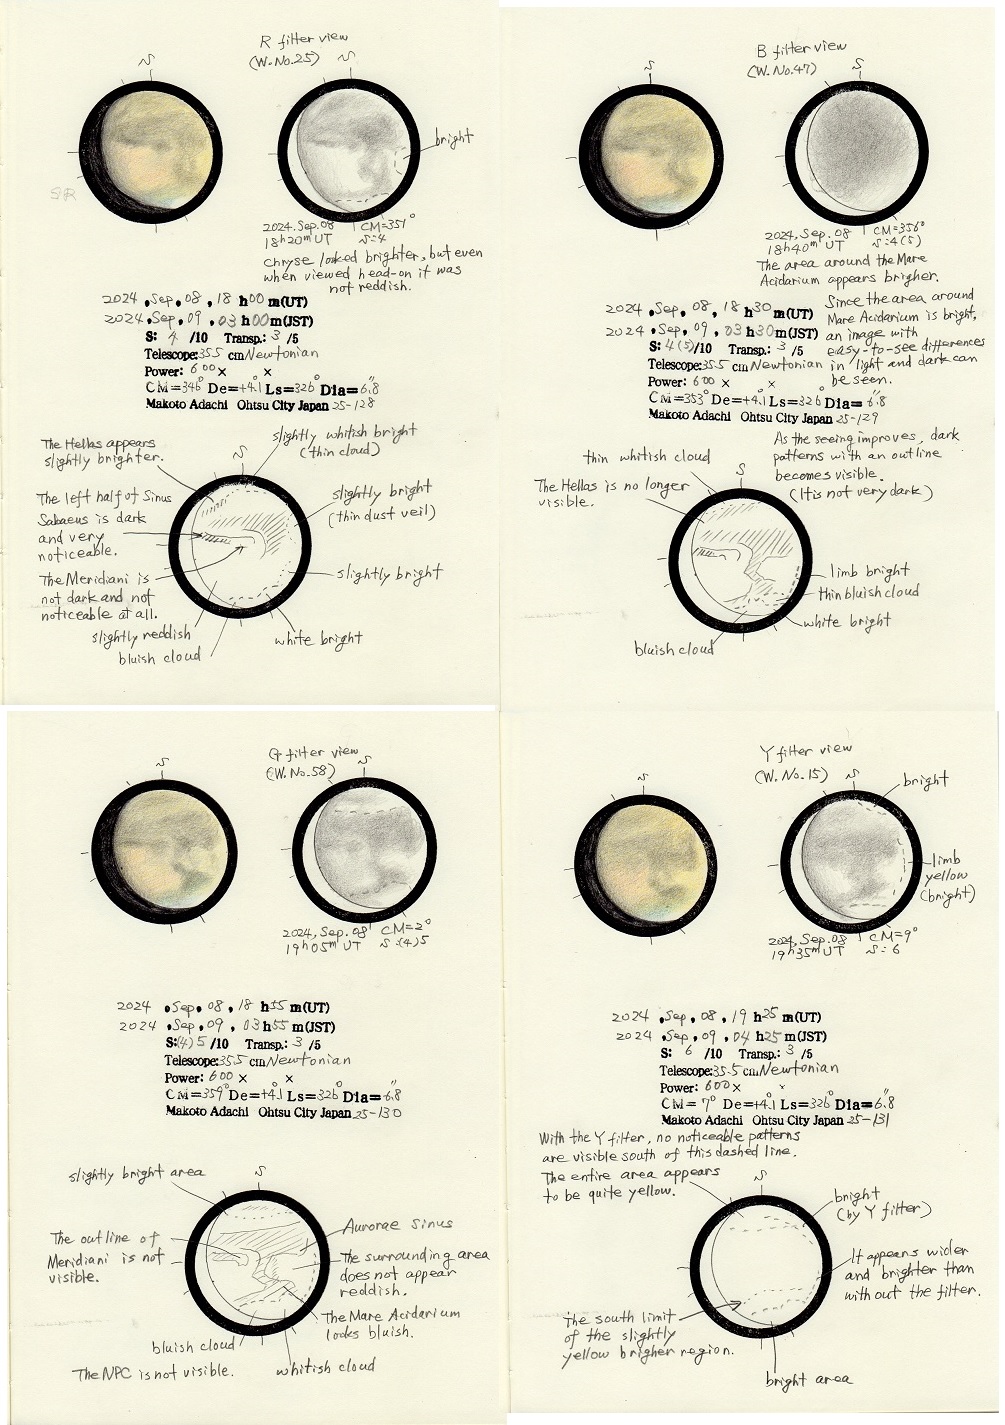 R filter view
(W.No.25)
S
S
bright
2024.Sep.08 CM=351°
18h20m UT S:4
Chryse looked brighter, but even
when viewed head-on it was
not reddish.
2024 .Sep. 08, 18 h00 m(UT)
2024 .Sep. 09, 03 h00 m(JST)
S: 4 /10 Transp.: 3 /5
Telescope:35.5 cm Newtonian
Power: 600 × ×
CM=346° De=+4.1° Ls=326° Dia=6.8"
Makoto Adachi Ohtsu City Japan 25-128
The Hellas appears
slightly brighter.
slightly whitish bright
(thin cloud)
S
The left half of Sinus
Sabaeus is dark
and very
noticeable.
slightly bright
(thin dust veil)
The Meridiani is
not dark and not
noticeable at all.
slightly bright
slightly reddish
bluish cloud
white bright
B filter view
(W.No.47)
S
S
2024.Sep.08 CM=356°
18h40m UT S:4(5)
The area around the Mare
Acidarium appears brigher.
Since the area around
Mare Acidarium is bright,
an image with
easy-to-see differences
in light and dark can
be seen.
2024 .Sep. 08, 18 h30 m(UT)
2024 .Sep. 09, 03 h30 m(JST)
S: 4(5)/10 Transp.: 3 /5
Telescope:35.5 cm Newtonian
Power: 600 × ×
CM=353° De=+4.1° Ls=326° Dia=6.8"
Makoto Adachi Ohtsu City Japan 25-129
As the seeing improves, dark
patterns with an outline
becomes visible.
(It is not very dark)
thin whitish cloud
S
The Hellas is no longer
visible.
limb bright
thin bluish cloud
white bright
bluish cloud
G filter view
(W.No.58)
S
S
2024.Sep.08 CM=2°
19h05m UT S:(4)5
2024 .Sep. 08, 18 h55 m(UT)
2024 .Sep. 09, 03 h55 m(JST)
S:(4)5 /10 Transp.: 3 /5
Telescope:35.5 cm Newtonian
Power: 600 × ×
CM=359° De=+4.1° Ls=326° Dia=6.8"
Makoto Adachi Ohtsu City Japan 25-130
slightly bright area
S
The outline of
Meridiani is not
visible.
Aurorae Sinus
The surrounding area
does not appear
reddish.
The Mare Acidarium
looks bluish.
bluish cloud
whitish cloud
The NPC is not visible.
Y filter view
(W.No.15)
S
S
bright
limb
yellow
(bright)
2024.Sep.08 CM=9°
19h35m UT S:6
2024 .Sep. 08, 19 h25 m(UT)
2024 .Sep. 09, 04 h25 m(JST)
S: 6 /10 Transp.: 3 /5
Telescope:35.5 cm Newtonian
Power: 600 × ×
CM= 7° De=+4.1° Ls=326° Dia=6.8"
Makoto Adachi Ohtsu City Japan 25-131
With the Y filter, no noticeable patterns
are visible south of this dashed line.
The entire area appears
to be quite yellow.
S
bright
(by Y filter)
It appears wider
and brighter than
without the filter.
The south limit
of the slightly
yellow brigher region.
bright area